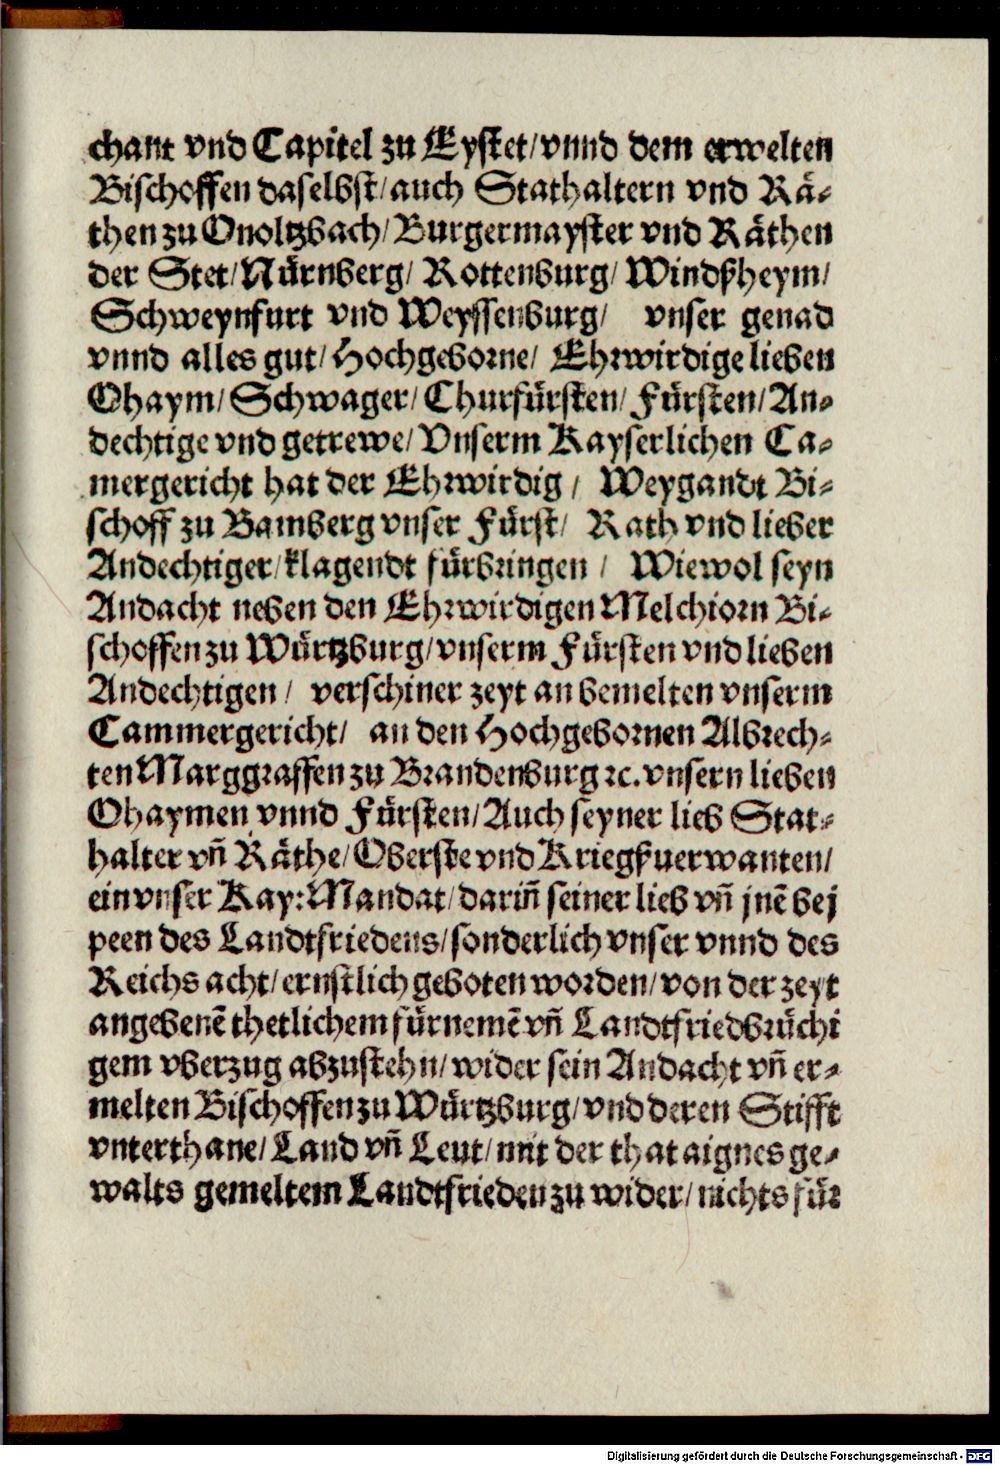 chant vnd Capitel zu Eystet/vnnd dem erwelten
Bischoffen daselbst/auch Stathaltern vnd Rä-
then zu Onoltzbach/Burgermayster vnd Räthen
der Stet/Nürnberg/ Rottenburg/ Windßheym/
Schweynfurt vnd Weyssenburg/ vnser genad
vnnd alles gut/Hochgeborne/ Ehrwirdige lieben
Ohaym/Schwager/Churfürsten/Fürsten/An-
dechtige vnd getrewe/Vnserm Kayserlichen Ca-
mergericht hat der Ehrwirdig/ Weygandt Bi-
schoff zu Bamberg vnser Fürst/ Rath vnd lieber
Andechtiger/klagendt fürbringen/ Wiewol seyn
Andacht neben den Ehrwirdigen Melchiorn Bi-
schoffen zu Würtzburg/vnserm Fürsten vnd lieben
Andechtigen/ verschiner zeyt an bemelten vnserm
Cammergericht/ an den Hochgebornen Albrech-
ten Marggraffen zu Brandenburg ꝛc. vnsern lieben
Ohaymen vnnd Fürsten/Auch seyner lieb Stat-
halter vñ Räthe/Oberste vnd Kriegßuerwanten/
ein vnser Kay: Mandat/dariñ seiner lieb vñ jnē bej
peen des Landtfriedens/sonderlich vnser vnnd des
Reichs acht/ernstlich geboten worden/von der zeyt
angebenē thetlichem fürnemē vñ Landtfriedbrüchi
gem vberzug abzustehn/wider sein Andacht vñ er-
melten Bischoffen zu Würtzburg/vnd deren Stifft
vnterthane/Land vñ Leut/mit der that aignes ge-
walts gemeltem Landtfrieden zu wider/nichts für
Digitalisierung gefördert durch die Deutsche Forschungsgemeinschaft - DFG